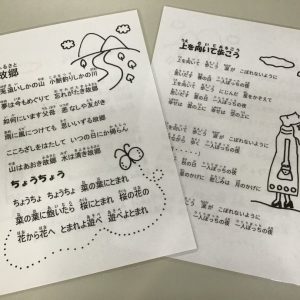 ふるさと
故郷
兎追いしかの山 小鮒釣りしかの川
夢は今もめぐりて 忘れがたき故郷
如何にいます父母 恙なしや友がき
雨に風につけても 思いいずる故郷
こころざしをはたして いつの日にか帰らん
山はあおき故郷 水は清き故郷
ちょうちょう
ちょうちょ ちょうちょ 菜の葉にとまれ
菜の葉に飽いたら 桜にとまれ 桜の花の
花から花へ とまれよ遊べ 遊べよとまれ
上を向いて歩こう
上を向いて 歩こう 涙が こぼれないように
思い出す 春の日 一人ぼっちの夜
上を向いて 歩こう にじんだ 星をかぞえて
思い出す 夏の日 一人ぼっちの夜
幸せは 雲の上に
幸せは 空の上に
上を向いて 歩こう 涙が こぼれないように
一人ぼっちの夜
悲しみは 月のかげに
こぼれないように
一人ぼっちの夜
一人ぼっちの夜